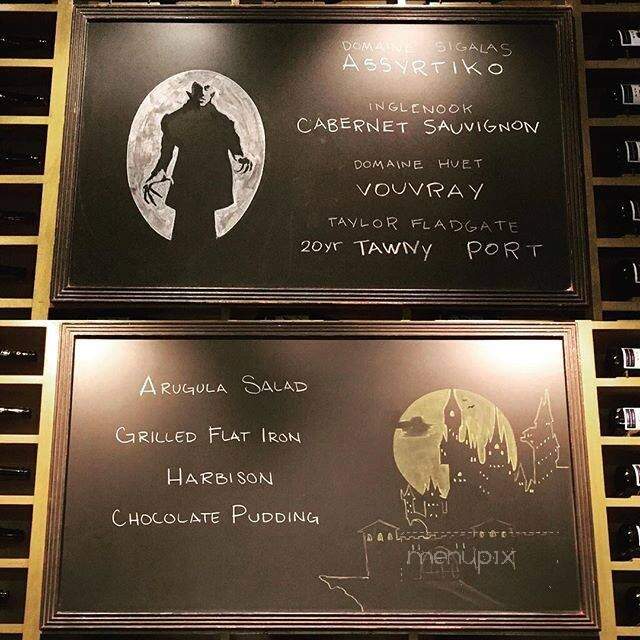 DOMAINE SIGALAS
ASSYRTIKO
INGLENOOK
CABERNET SAUVIGNON
DOMAINE HUET
VOUVRAY
TAYLOR FLADGATE
20yr TAWNY PORT
ARUGULA SALAD
GRILLED FLAT IRON
HARBISON
CHOCOLATE PUDDING
menupix